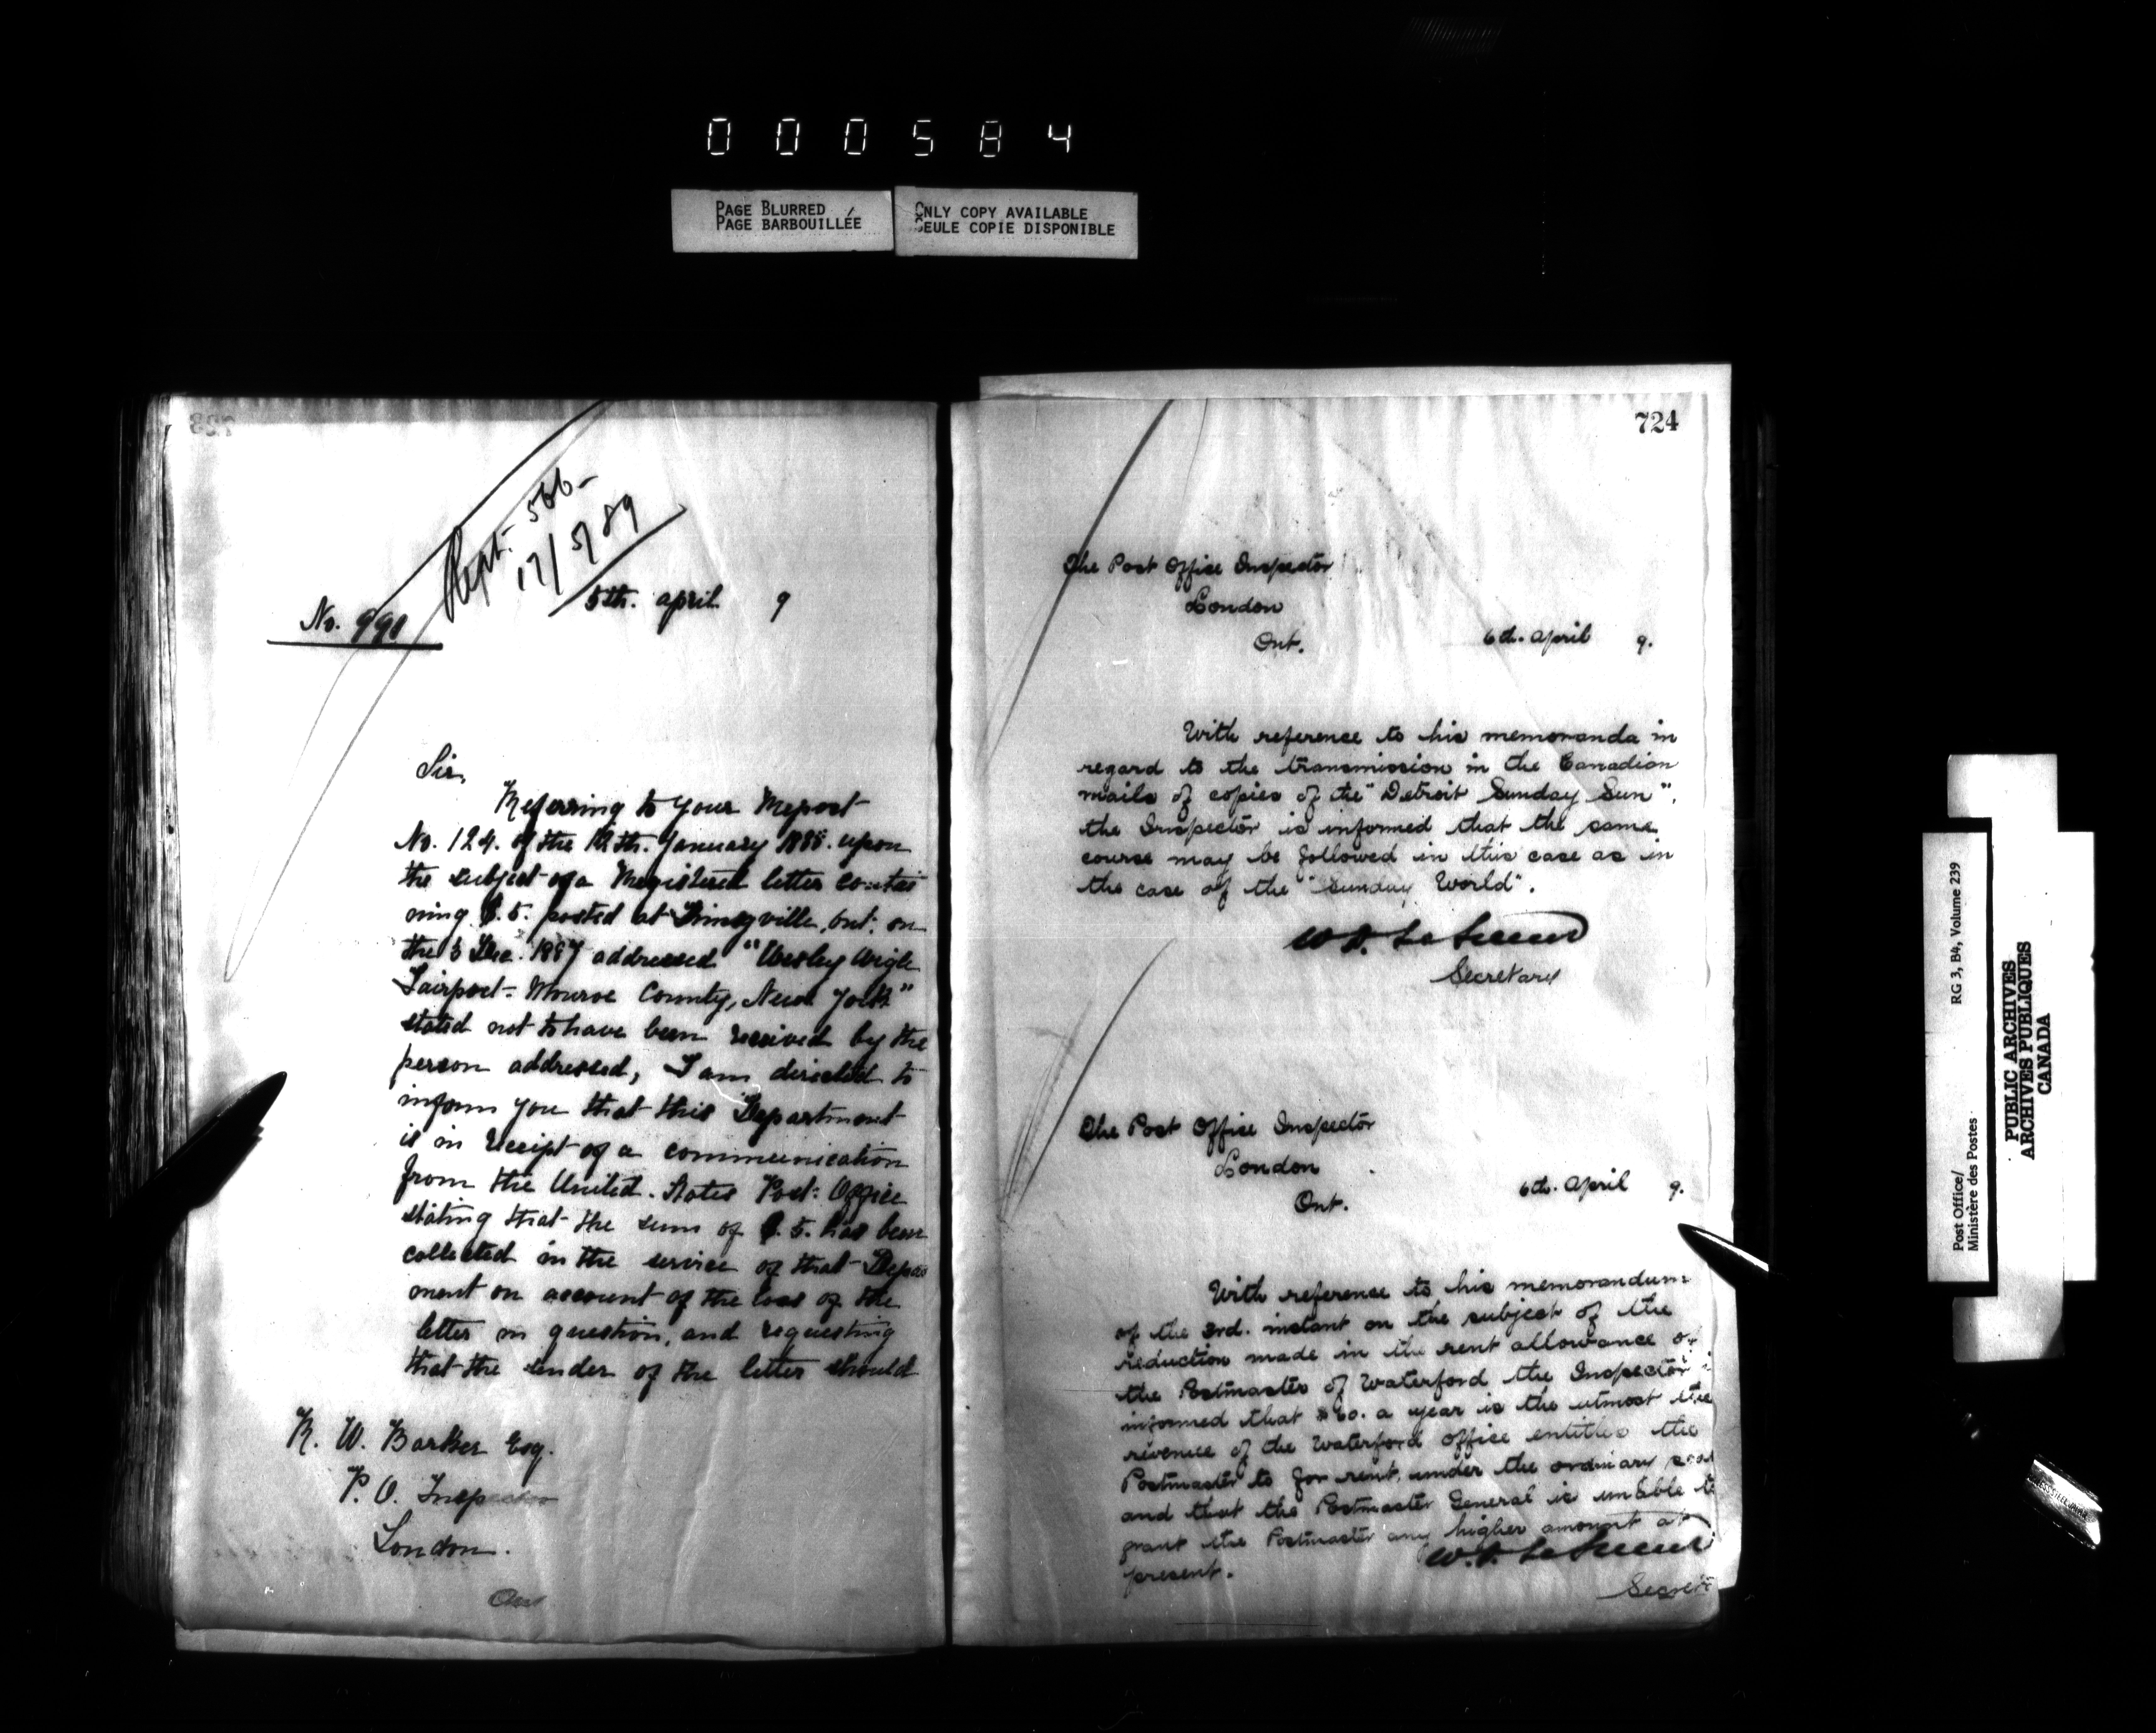 000584
PAGE BLURRED
PAGE BARBOUILLÉE
ONLY COPY AVAILABLE
SEULE COPIE DISPONIBLE
723
Rept. 566-
17/5/89
No. 990
5th. April 9
Sir,
Referring to your Report
No. 124. of the 12th. January 1888. upon
the subject of a Registered letter contai
ning $.5. posted at Ont. on
the 3 Dec. 1887 addressed "Wesley Wigle
Fairport- Monroe County, New York"
stated not to have been received by the
person addressed, I am directed to
inform you that this Department
is in receipt of a communication
from the United. States Post: Office
stating that the sum of $.5. has been
collected in the service of that Depart
ment on account of the loss of the
letter in question, and requesting
that the sender of the letter should
R. W. Barker Esq.
P. O. Inspector
London.
Ont
724
The Post Office Inspector
London
Ont.
6th. April 9.
With reference to his memoranda in
regard to the transmission in the Canadian
mails of copies of the "Detroit Sunday Sun",
the Inspector is informed that the same
course may be followed in this case as in
the case of the "Sunday World".
W. D. LeSueur
Secretary
The Post Office Inspector
London
Ont.
6th. April 9.
With reference to his memorandum
of the 3rd. instant on the subject of the
reduction made in the rent allowance of
the Postmaster of Waterford the Inspector i
informed that $60. a year is the utmost the
revenue of the Waterford office entitles the
Postmaster to for rent, under the ordinary scal
and that the Postmaster General is unable to
grant the Postmaster any higher amount at
present.
W. D. LeSueur
Secret
Post Office/
Ministère des Postes
RG 3, B4, Volume 239
PUBLIC ARCHIVES
ARCHIVES PUBLIQUES
CANADA